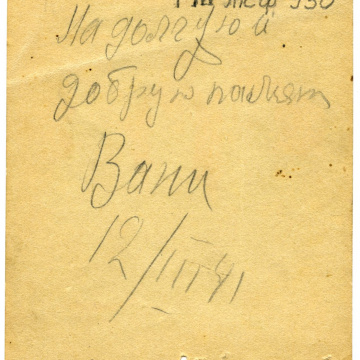 На долгую и
добрую память
Вани
12/III 41